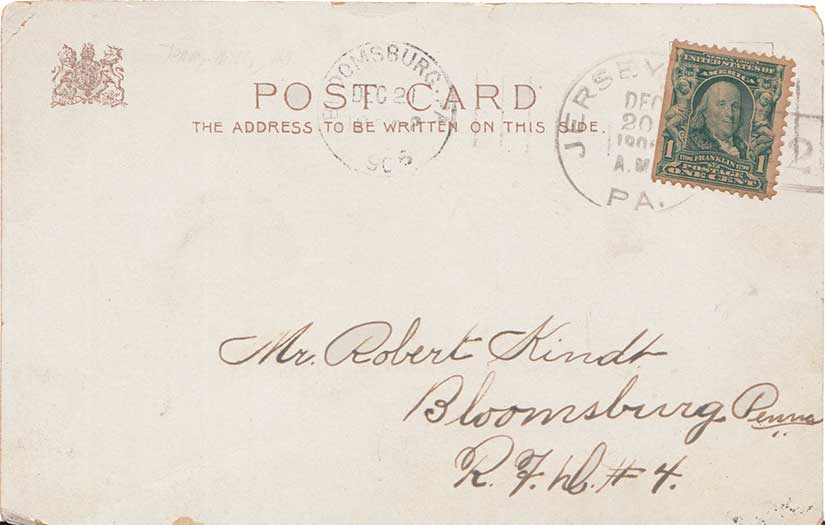 BLOOMSBURG, PA
DEC 21
POST CARD
THE ADDRESS TO BE WRITTEN ON THIS SIDE.
JERSEY
DEC
20
A.M
PA.
2
UNITED STATES OF
AMERICA
1 1790 FRANKLIN 1790 1
POSTAGE
ONE CENT
Mr. Robert Kindt
Bloomsburg Penna
R. F. D. # 4.